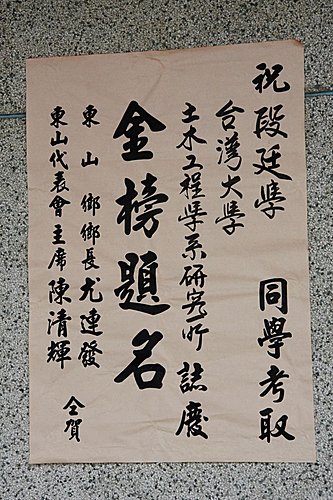 祝 段廷學 同學考取
台灣大學
土木工程學系研究所 誌慶
金榜題名
東山鄉鄉長尤連發
東山代表會主席陳清輝
仝賀